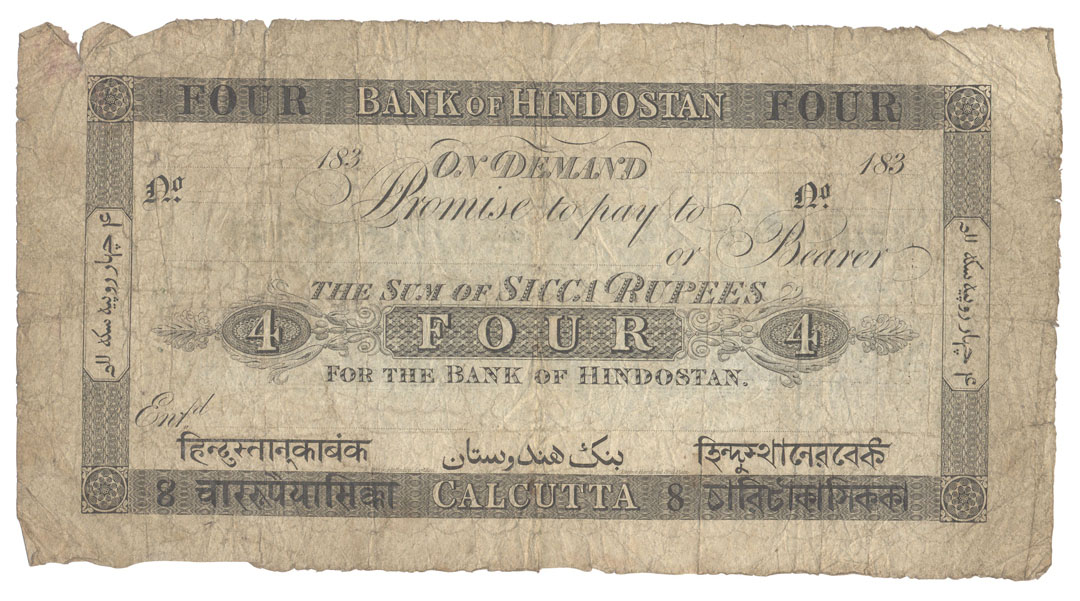 FOUR BANK OF HINDOSTAN FOUR
183 ON DEMAND 183
No. Promise to pay to No.
or Bearer
THE SUM OF SICCA RUPEES
4 FOUR 4
FOR THE BANK OF HINDOSTAN.
Entd
हिन्दुस्तानकाबंक بنك هندوستان হিন্দুস্থানেরবেঙ্ক
४ चाररूपैयासिक्का CALCUTTA ৪ চারিটাকাসিককা